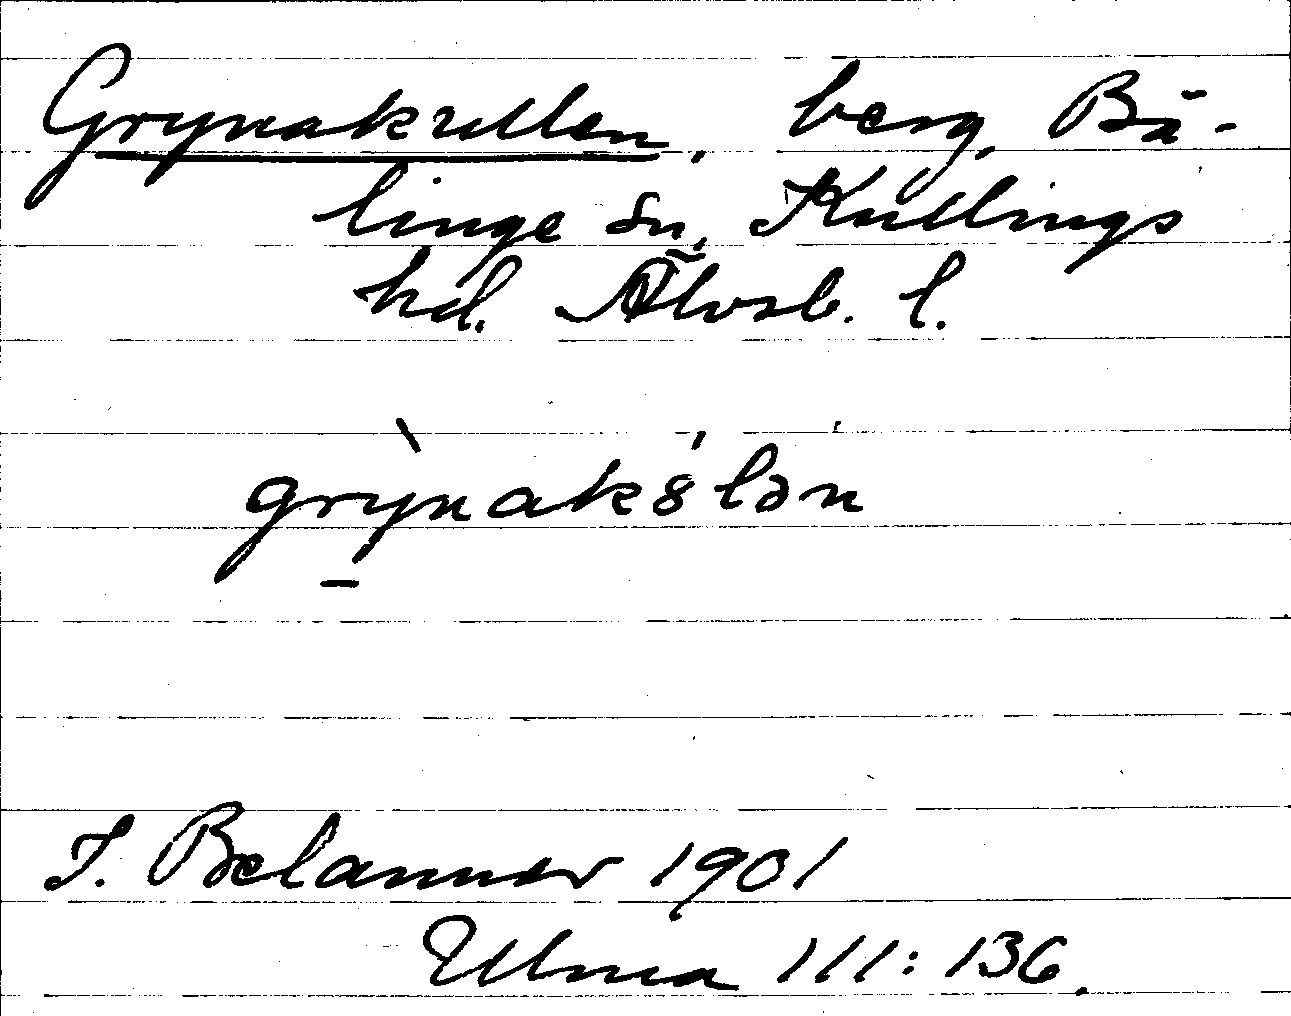 Grynakullen, berg, Bä-
linge sn, Kullings
hd. Älvsb. l.
grỳnak8́lən
I. Belanner 1901
Ulma 111:136.